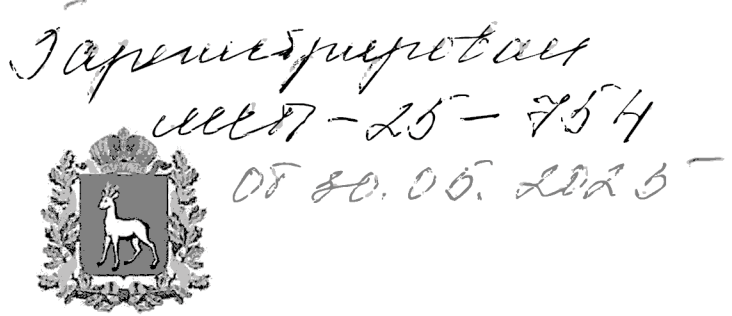 Зарегистрирован
МСП-25-754
от 30.05.2025